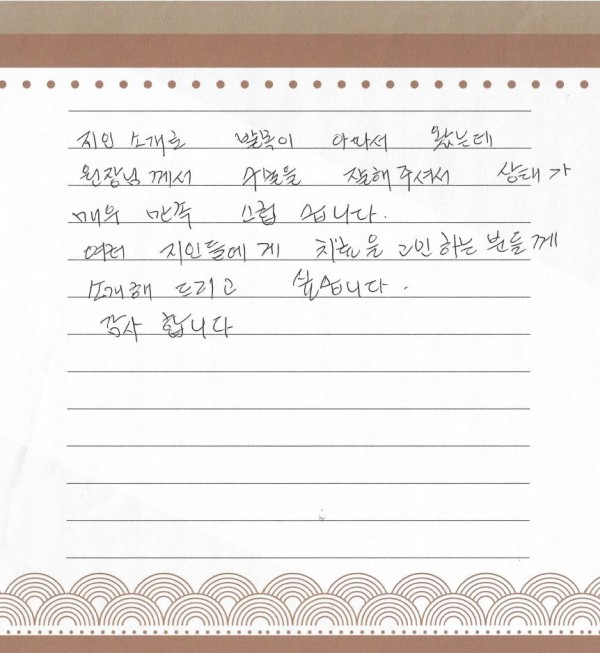 지인 소개로 발목이 아파서 왔는데
원장님 께서 수술을 잘해주셔서 상태가
매우 만족 스럽 습니다.
여러 지인들에게 치료을 고민하는 분들께
소개해 드리고 싶습니다.
감사 합니다